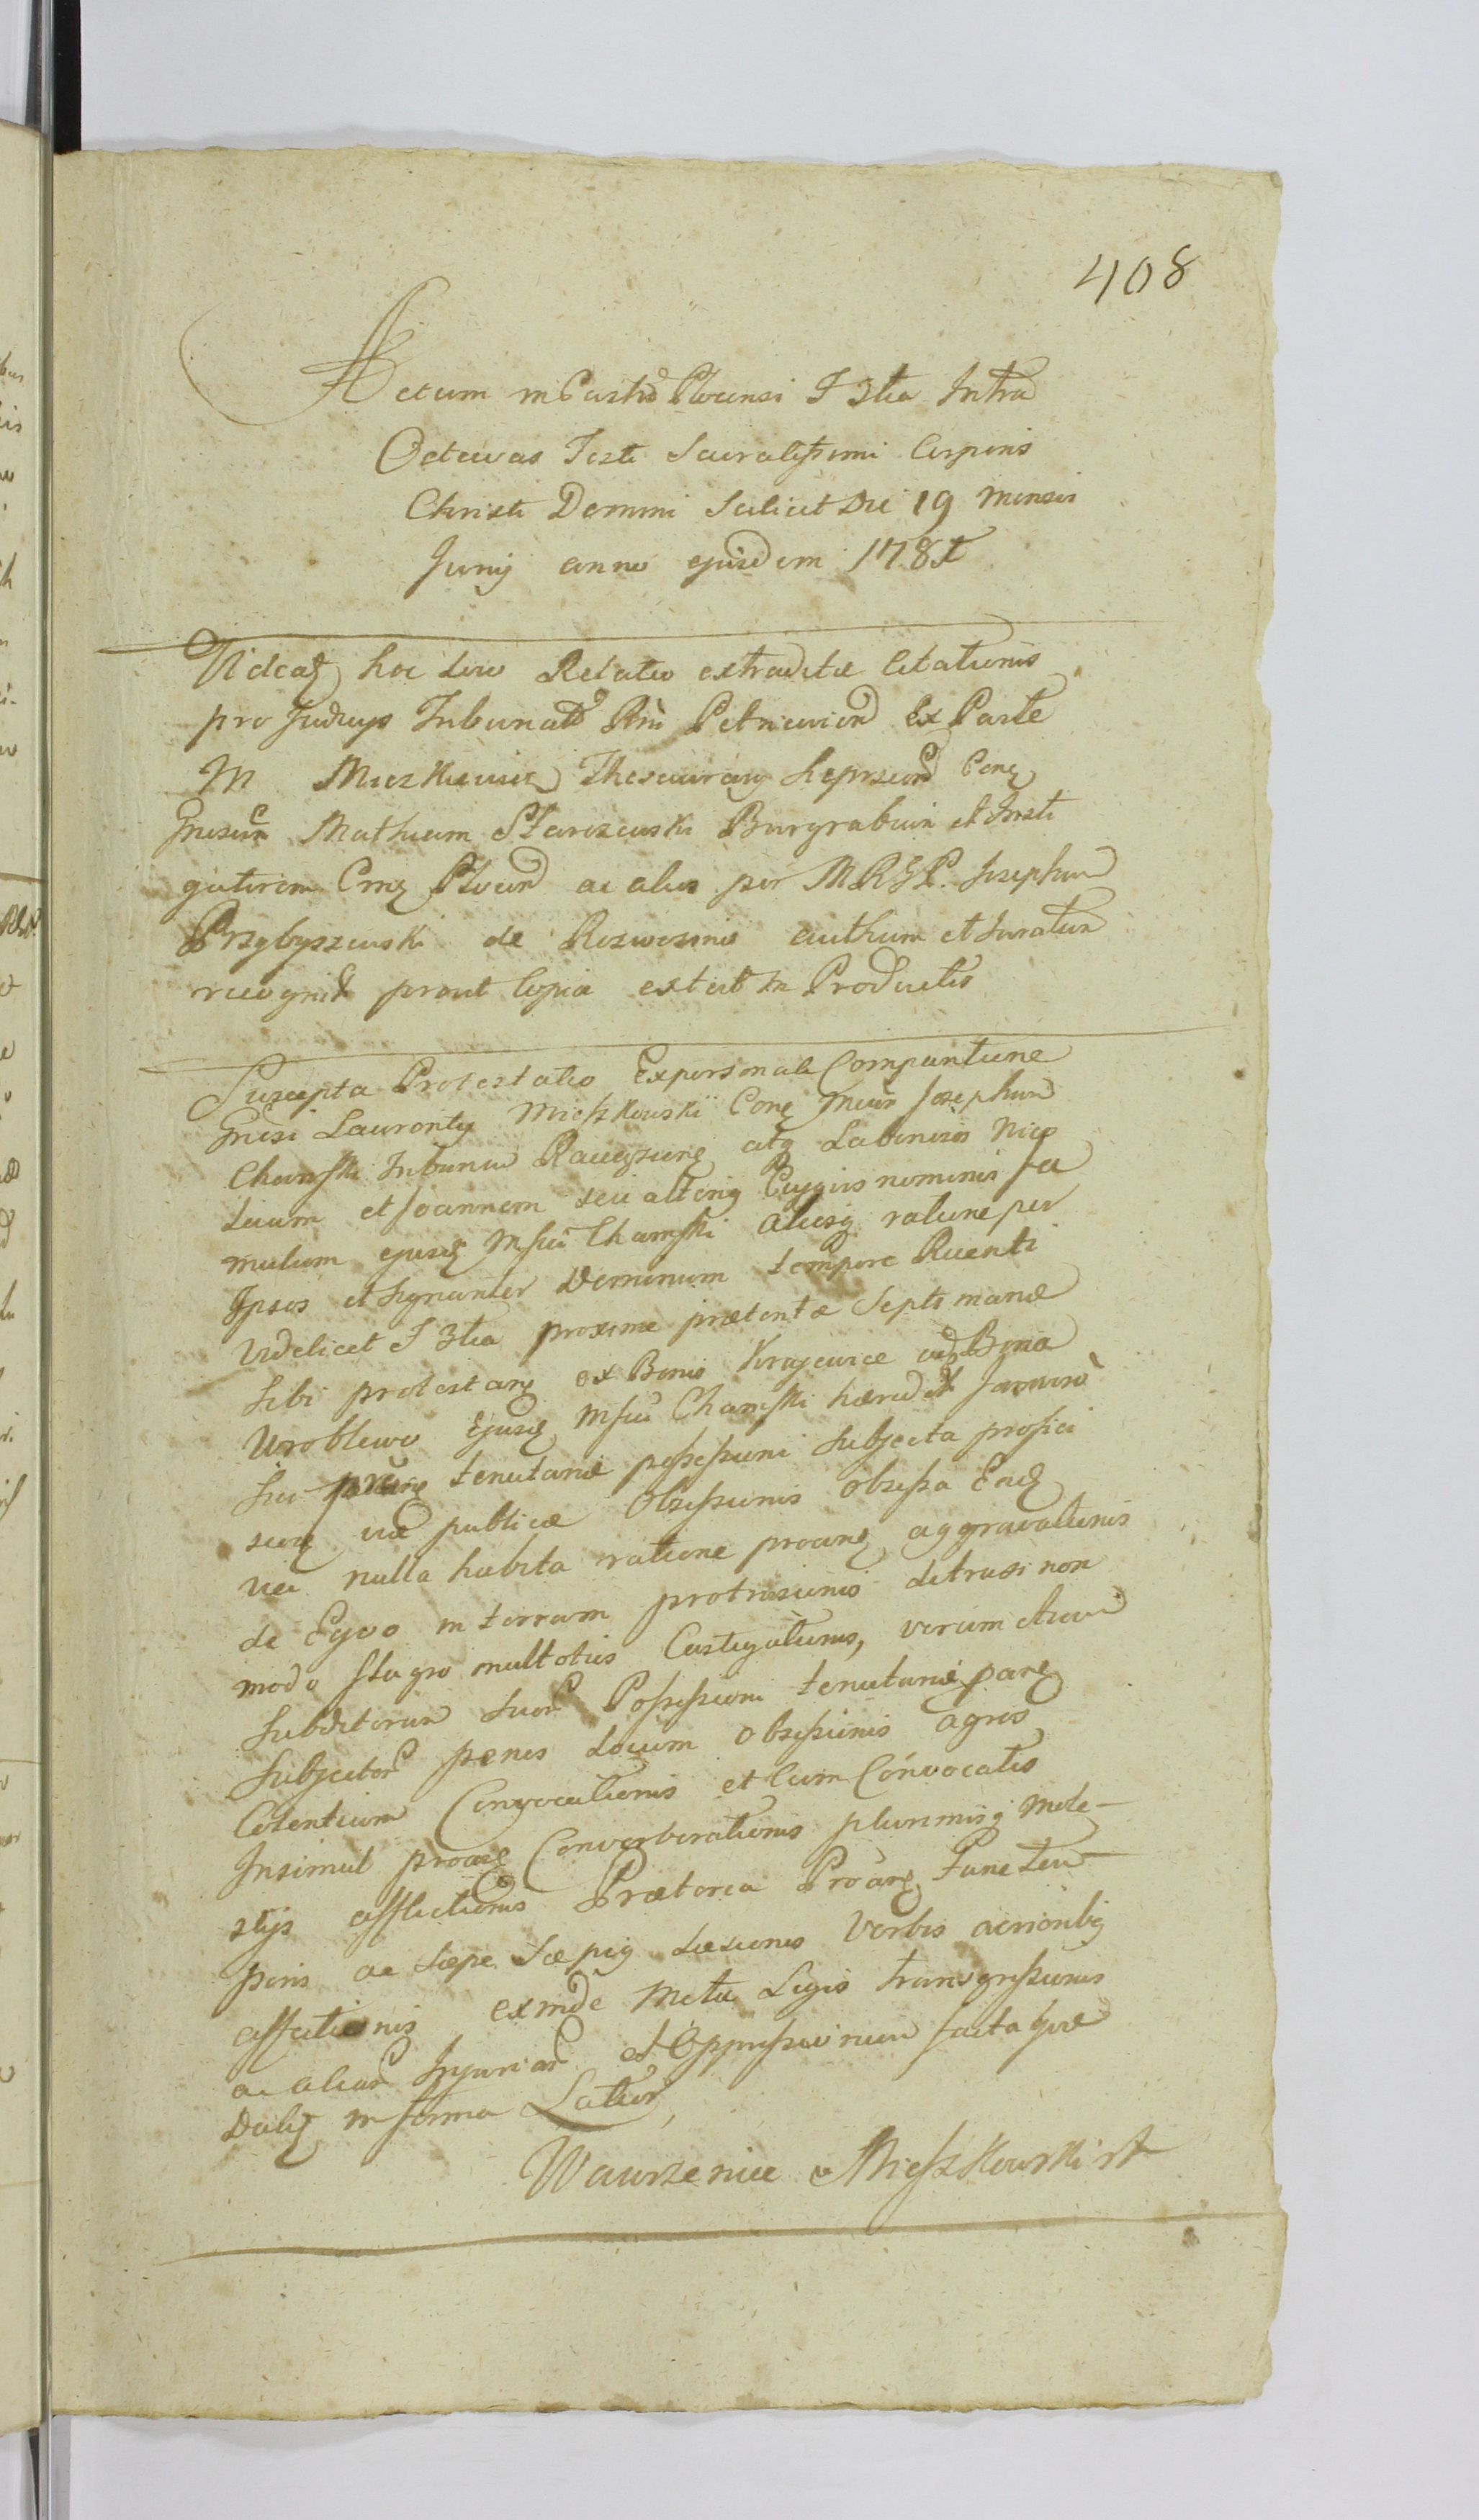 408
Actum in Castro Plocensi F 3tia Intra
Octavas Festi Sacratissimi Corporis
Christi Domini Scilicet Die 19 Mensis
Junij anno ejusdem 178
Videatz hoc Loco Relatio extraditæ Citationis
pro Judicijs Tribunald Petricovien Ex Parte
M Mierkiewicz Thesaurarij Conz
Gnosum Mathiam Starczewski Burgrabium et Insti
gatorem Crnz Plocen ac alios per MRGP. Josephum
Przybyszewski de Rzewino authum et Juratum
recognit prout Copia extat in Productis
Suscepta Protestatio Expersonali Comparitione
Gnosi Laurentij Mieszkowski Conz Josephum
Chamski Tribunum Raciązsenz atq Laboriosos Nico
laum et Joannem seu alterius Cujusvis nominis fa
mulum ejusdz Chamski aliosq ratione per
Ipsos et signanter Dominum tempore Recenti
Videlicet F 3tia proxime præteritæ Septimanæ
Sibi protestanz ex Bonis Krajewice ad Bona
Wroblewo Ejusdz Chamski hæredit
Suo tenutariæ possessioni subjecta profici
scenz viæ publicæ Obsessionis obsessa Eadz
via nulla habita ratione proanz aggravationis
de Equo in terram protrusionis detrusi non
modo flagro multoties Castigationis, verum etiam
Subditorum Suor Possessioni tenutariæ panz
Subjector penes Locum obsessionis agros
Colentium Convocationis et Cum Convocatis
Insimul proanz Converberationis plurimisq mole-
stijs afflictionis Prætorea Proanz Tane tem
poris ac Sæpe Sæpiq Læsionis Verbis acriorib
affectionis exinde Metu Legis transgressionis
ac aliar Injuriar et Oppressionum facta quæ
Dabiz in forma Latior
Wawrzeniec Mieszkowski